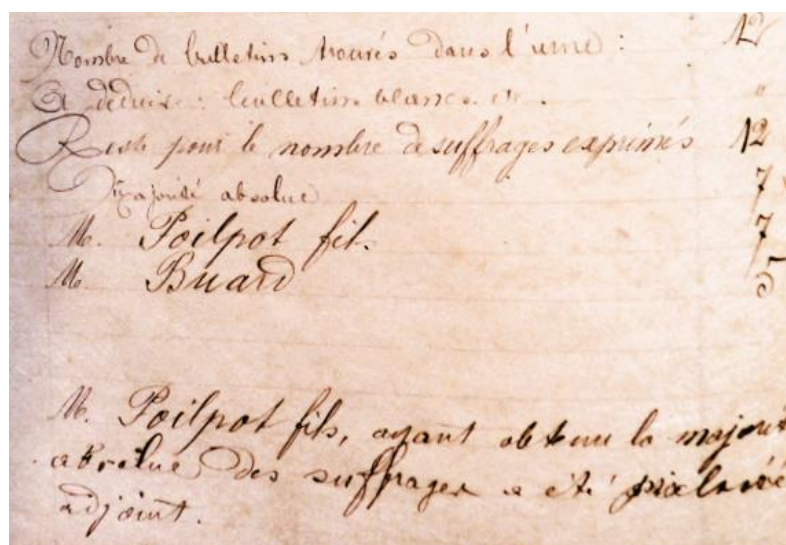 Nombre de bulletins trouvés dans l'urne : 12
A déduire : bulletins blancs. etc. "
Reste pour le nombre de suffrages exprimés 12
Majorité absolue 7
M. Poilpot fils. 7
M. Buard 5
M. Poilpot fils, ayant obtenu la majorité
absolue des suffrages a été proclamé
adjoint.